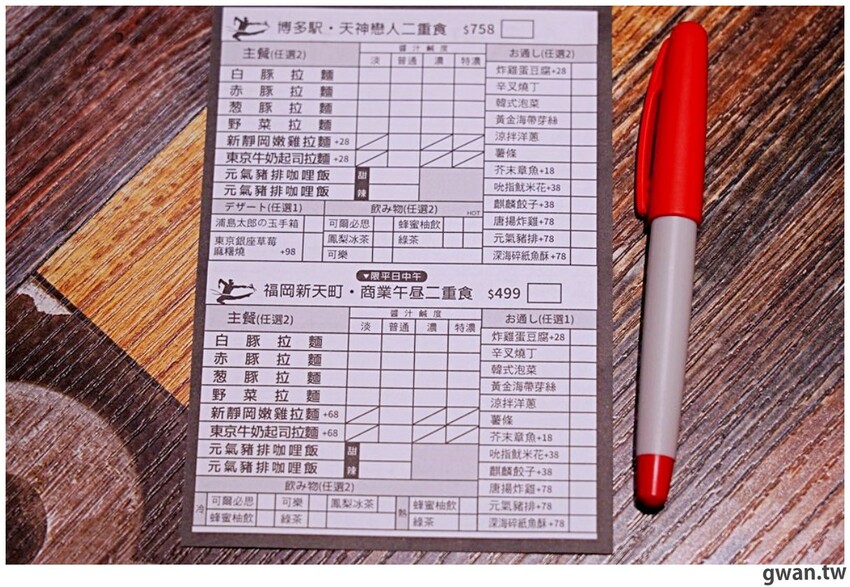 博多駅・天神戀人二重食 $758
主餐(任選2) 醬汁鹹度 お通し(任選2)
淡 普通 濃 特濃
炸雞蛋豆腐+28
白豚拉麵
辛叉燒丁
赤豚拉麵
韓式泡菜
葱豚拉麵
黃金海帶芽絲
野菜拉麵
涼拌洋蔥
新靜岡嫩雞拉麵+28
薯條
東京牛奶起司拉麵+28
芥末章魚+18
元氣豬排咖哩飯 甜
吮指魷米花+38
元氣豬排咖哩飯 辣
麒麟餃子+38
デザート(任選1) 飲み物(任選2) HOT
唐揚炸雞+78
浦島太郎の玉手箱 可爾必思 蜂蜜柚飲
元氣豬排+78
東京銀座草莓麻糬燒+98 鳳梨冰茶 綠茶
可樂
深海碎紙魚酥+78
▼限平日中午
福岡新天町・商業午昼二重食 $499
主餐(任選2) 醬汁鹹度 お通し(任選1)
淡 普通 濃 特濃
炸雞蛋豆腐+28
白豚拉麵
辛叉燒丁
赤豚拉麵
韓式泡菜
葱豚拉麵
黃金海帶芽絲
野菜拉麵
涼拌洋蔥
新靜岡嫩雞拉麵+68
薯條
東京牛奶起司拉麵+68
芥末章魚+18
元氣豬排咖哩飯 甜
吮指魷米花+38
元氣豬排咖哩飯 辣
麒麟餃子+38
飲み物(任選2)
唐揚炸雞+78
冷 可爾必思 可樂 鳳梨冰茶 熱 蜂蜜柚飲
元氣豬排+78
蜂蜜柚飲 綠茶 綠茶
深海碎紙魚酥+78
gwan.tw